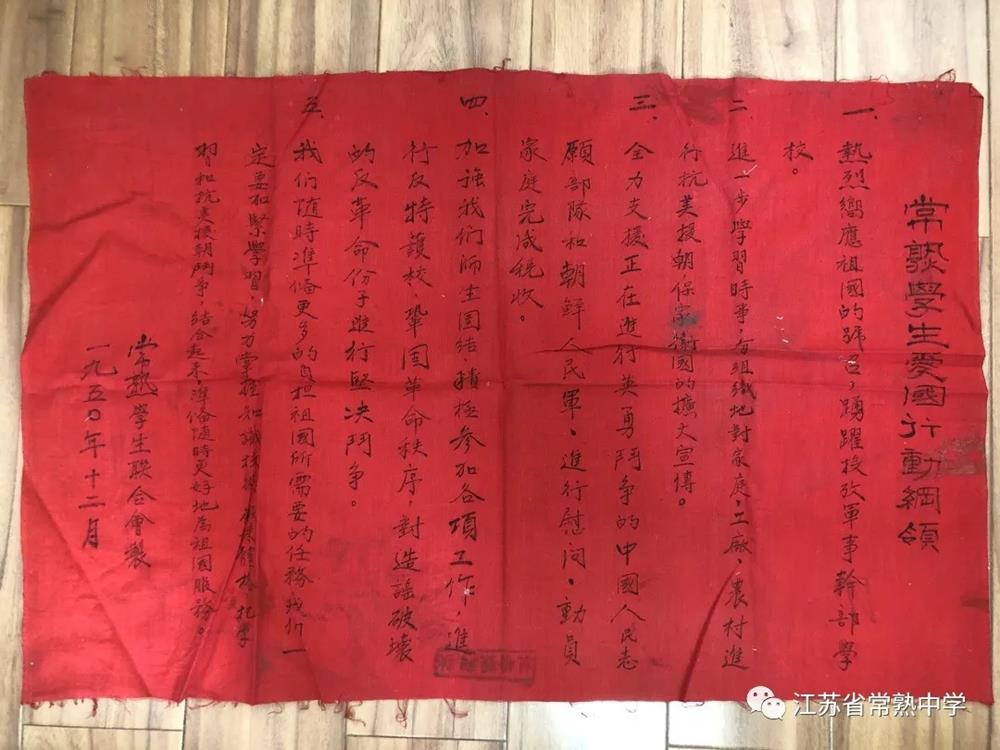 常熟學生愛國行動綱領
一、熱烈嚮應祖國的號召，踴躍投攷軍事幹部學
校。
二、進一步學習時事，有組織地對家庭，工廠，農村進
行抗美援朝保家衛國的擴大宣傳。
三、全力支援正在進行英勇鬥争的中國人民志
願部隊和朝鮮人民軍，進行慰问，動員
家庭完成稅收。
四、加強我们师生团结，積極參加各項工作，進
行反特護校，鞏固革命秩序，對造謠破壞
的反革命份子進行堅决鬥争。
五、我们随時准俻更多的負担祖國所需要的任務我们一
定要加緊學習，努力掌握知識技術，鍛煉體格，把學
習和抗美援朝鬥争，結合起来，準俻随時更好地為祖國服務。
常熟學生聯合會製
一九五〇年十二月
江苏省常熟中学